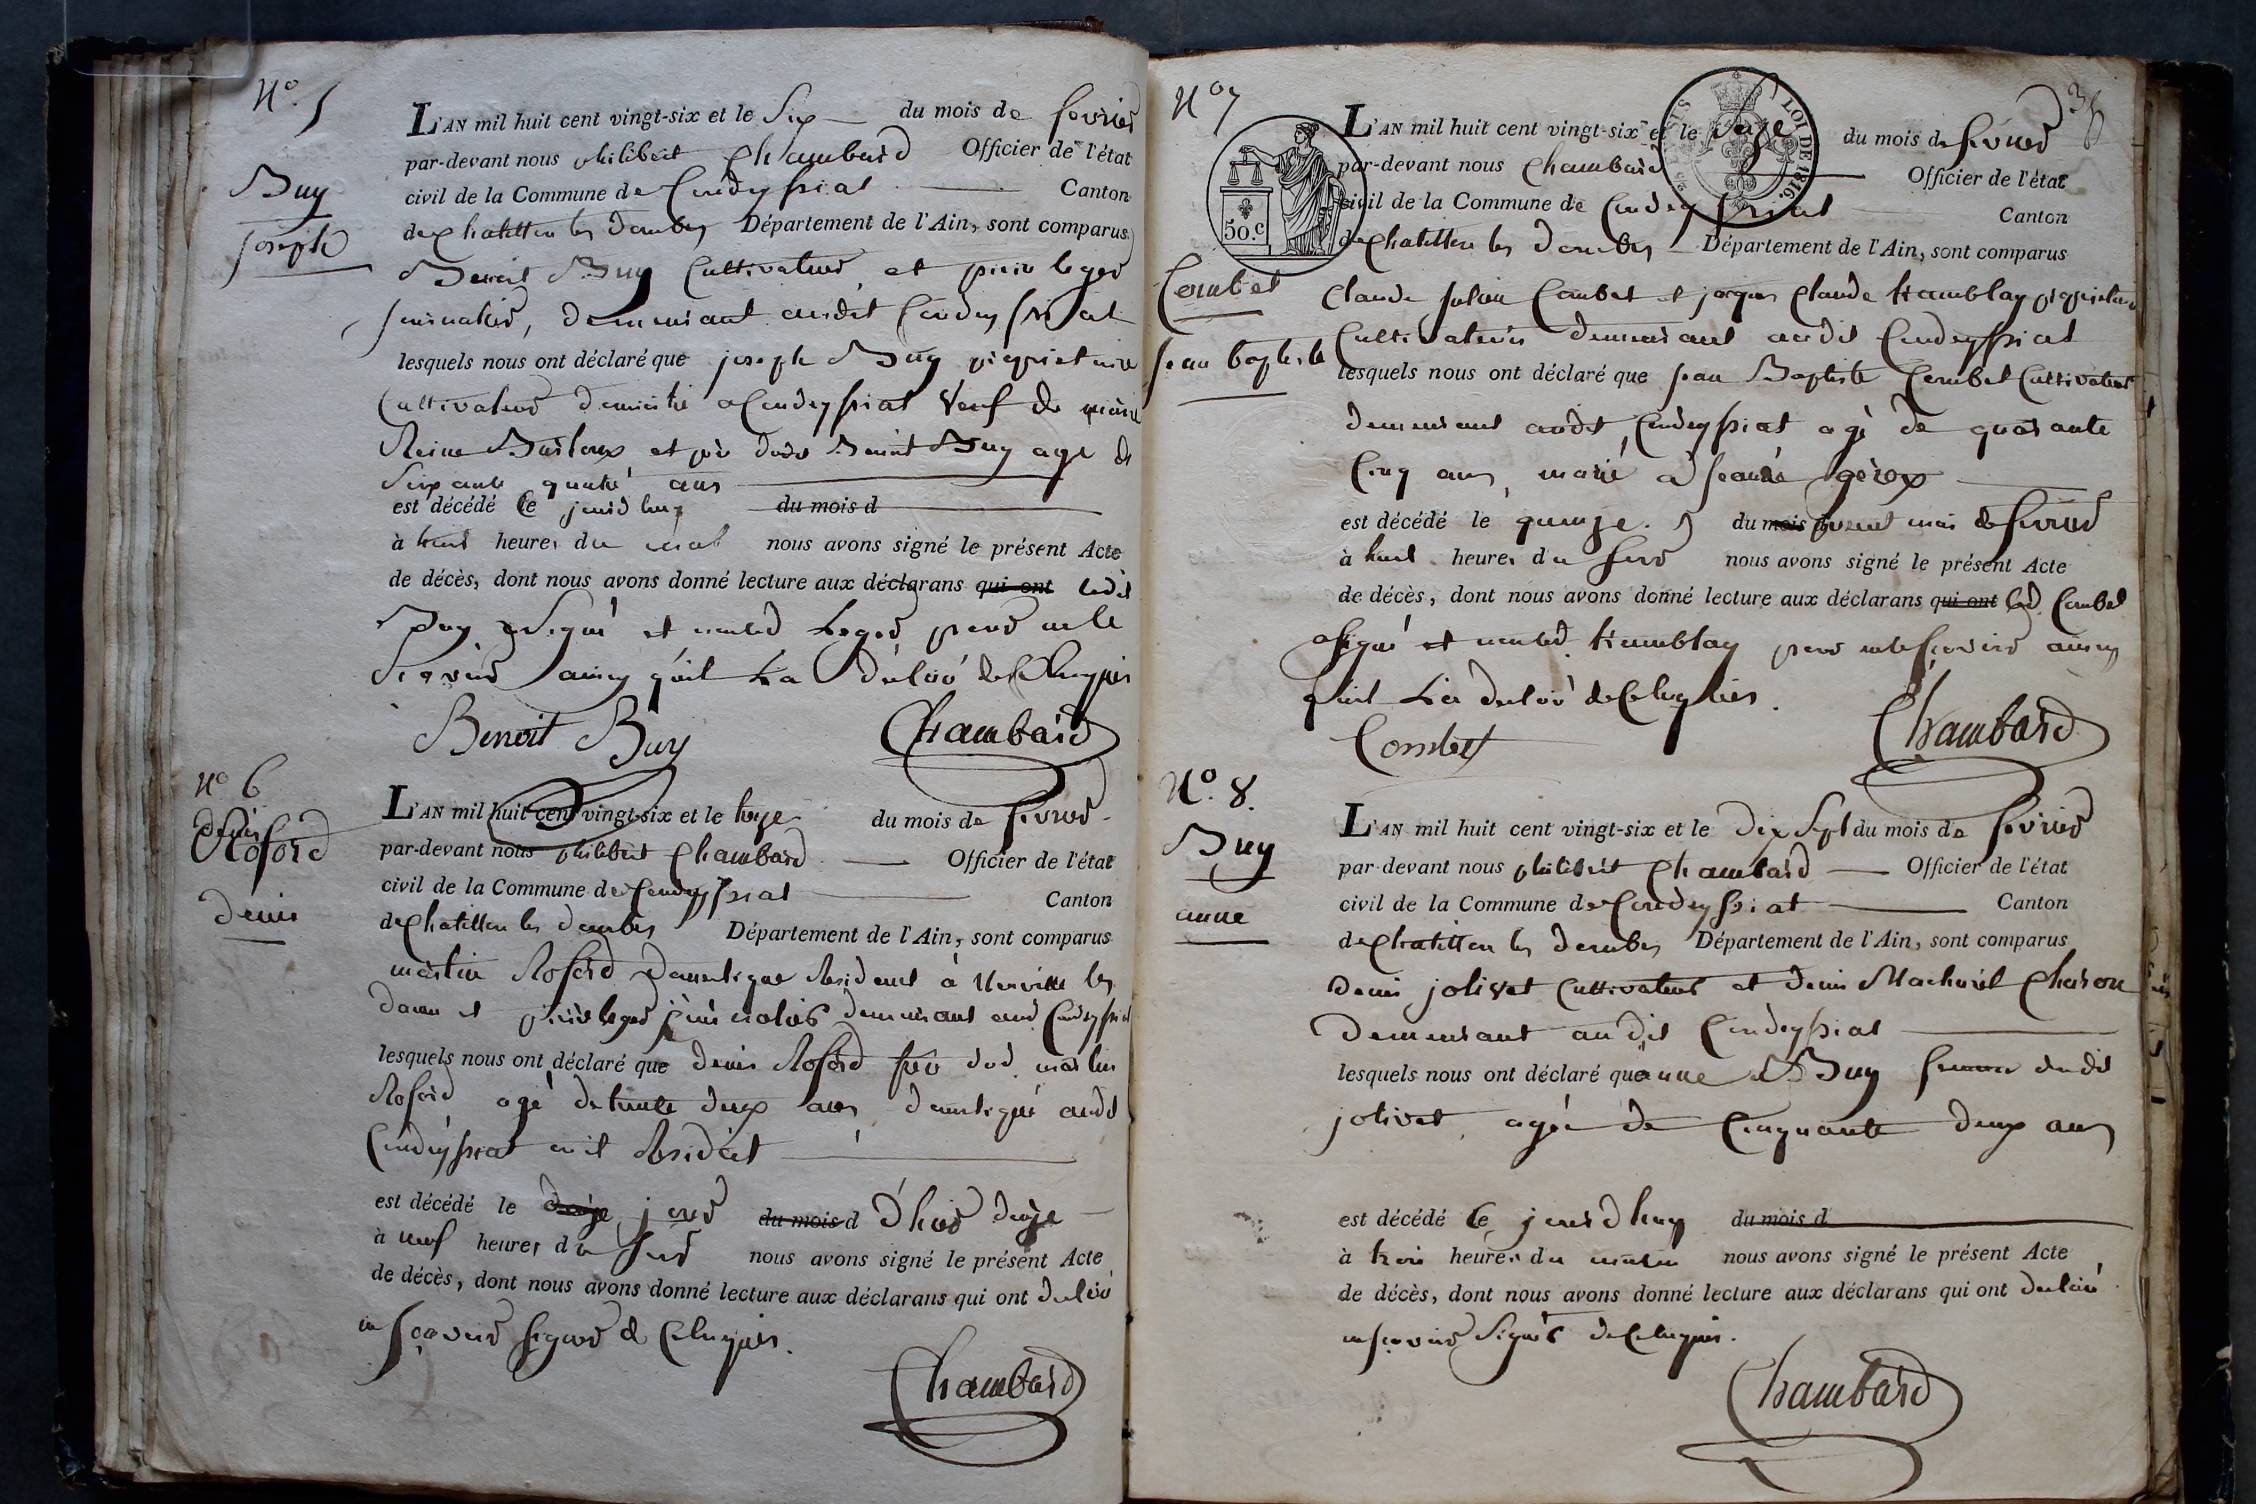 N° 5
Buy
Joseph
L'AN mil huit cent vingt-six et le Six du mois de fevrier
par-devant nous philibert Chambard Officier de l'état
civil de la Commune de Condeyssiat Canton
de Chatillon les Dombes Département de l'Ain, sont comparus
Benoit Buy Cultivateur et pierre leger
journalier, demeurant audit Condeyssiat
lesquels nous ont déclaré que joseph Buy proprietaire
Cultivateur domicilié a Condeyssiat Veuf de marie
Reine et pere dudt Benoit Buy age de
Soixante quatre ans
est décédé Ce jourd'huy du mois d
à huit heures du nous avons signé le présent Acte
de décès, dont nous avons donné lecture aux déclarans qui ont ledit
Buy a Signé et non led Leger pour ne le
Scavoir ainsy qu'il L'a declaré de Ce Enquis
Benoit Buy Chambard
N° 6
denis
Roford
denis
L'AN mil huit cent vingt-six et le treize du mois de fevrier
par-devant nous philibert Chambard Officier de l'état
civil de la Commune de Condeyssiat Canton
de Chatillon les Dombes Département de l'Ain, sont comparus
martin Roford Domestique Residant à Neuville les
dames et pierre leger journalier demeurant aud Condeyssiat
lesquels nous ont déclaré que denis Roford frere dud martin
Roford agé de trente deux ans domestique audt
Condeyssiat ou il Residoit
est décédé le jour du mois d d'hier douze
à neuf heures du soir nous avons signé le présent Acte
de décès, dont nous avons donné lecture aux déclarans qui ont declaré
ne sçavoir signer de Ce Enquis.
Chambard
N° 7
38
50.c
LOI DE 1816.
Combet
jean baptiste
L'AN mil huit cent vingt-six et le seize du mois de fevrier
par-devant nous Chambard Officier de l'état
civil de la Commune de Condeyssiat Canton
de Chatillon les Dombes Département de l'Ain, sont comparus
Claude Combet et jaques Claude tramblay proprietaires
Cultivateurs demeurant audit Condeyssiat
lesquels nous ont déclaré que jean Baptiste Combet Cultivateur
demeurant audt Condeyssiat agé de quarante
Cinq ans, marié a jeanne
est décédé le quinze du mois present mois de fevrier
à huit heures du soir nous avons signé le présent Acte
de décès, dont nous avons donné lecture aux déclarans qui ont led. Combet
a signé et non led. tramblay pour ne le scavoir ainsy
qu'il L'a declaré de Ce Enquis.
Combet Chambard
N° 8.
Buy
anne
L'AN mil huit cent vingt-six et le Dix Sept du mois de fevrier
par-devant nous philibert Chambard Officier de l'état
civil de la Commune de Condeyssiat Canton
de Chatillon les Dombes Département de l'Ain, sont comparus
Denis jolivet Cultivateur et denis Machurel Charon
Demeurant audit Condeyssiat
lesquels nous ont déclaré que anne Buy femme dudit
jolivet, agée de Cinquante deux ans
est décédé Ce jourd'huy du mois d
à trois heures du matin nous avons signé le présent Acte
de décès, dont nous avons donné lecture aux déclarans qui ont declaré
ne scavoir Signer de Ce Enquis.
Chambard